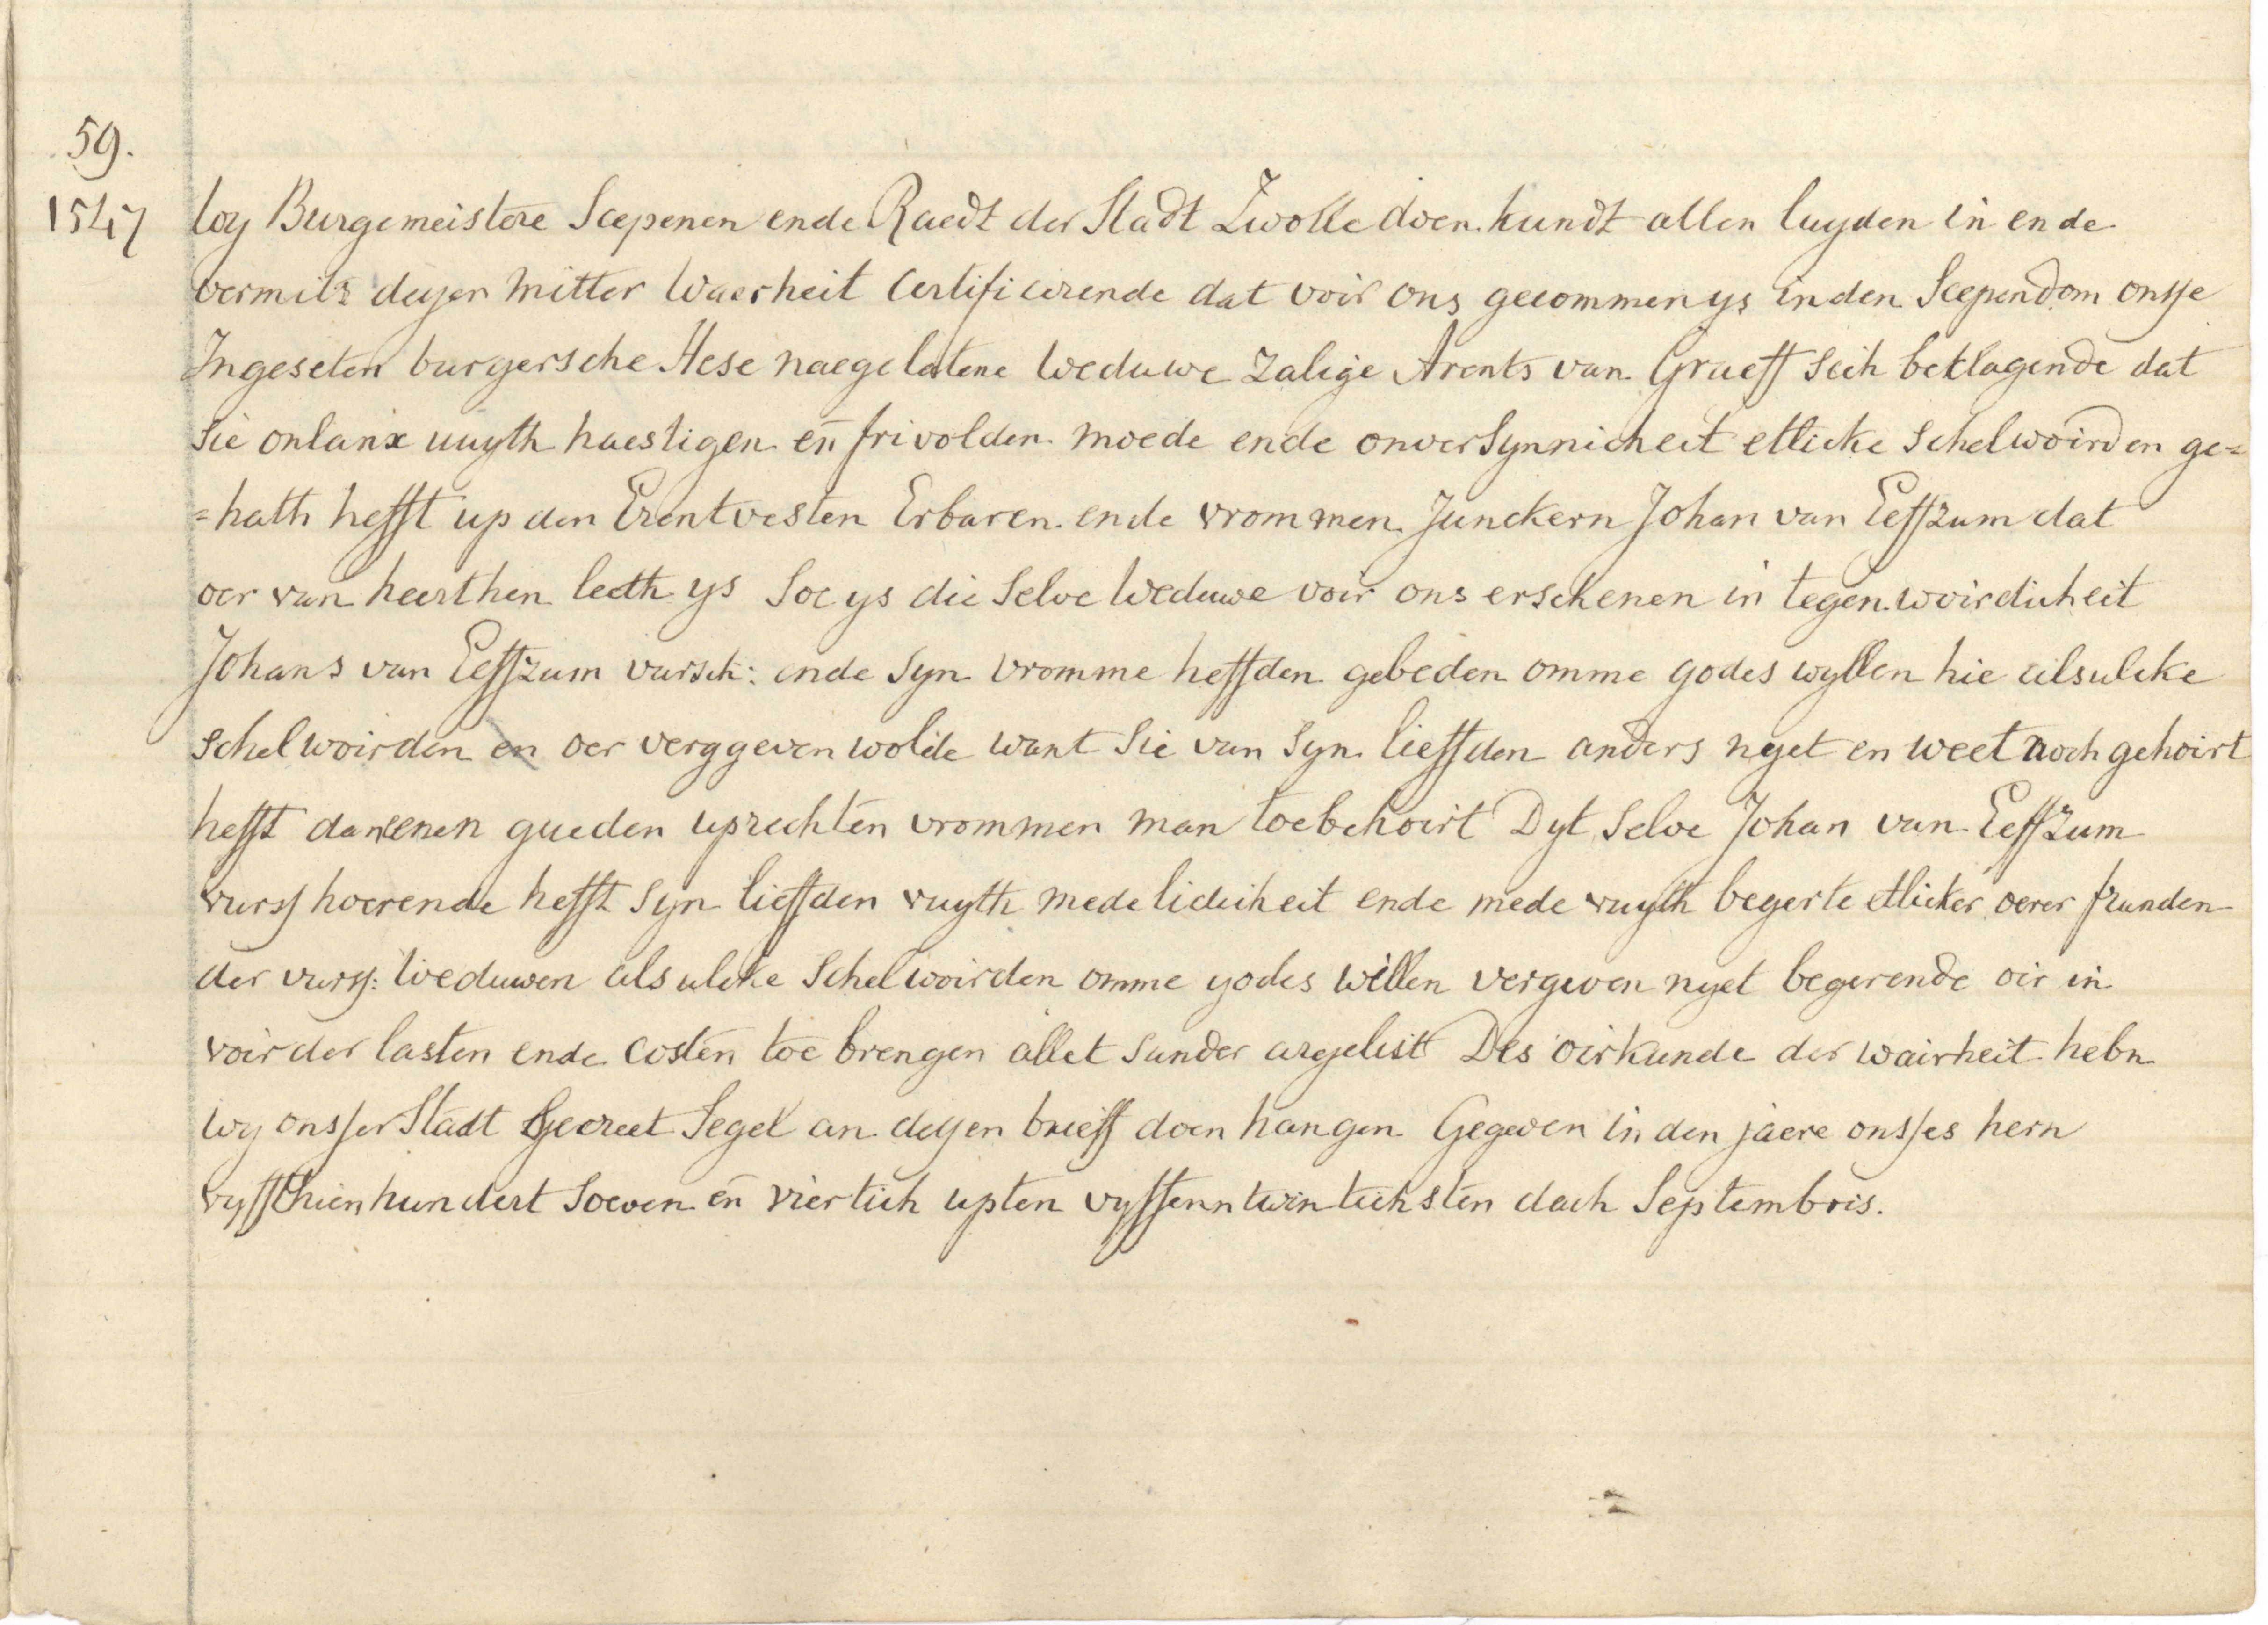 59.
1547 Wy Burgemeistere Scepenen ende Raedt der Stadt Zwolle doen kundt allen luyden in ende
vermitz deyen mitter Waerheit Certificirende dat voir ons gecommen ys in den Scependom onsse
Ingeseten burgersche Hese naegelatene Weduwe Zalige Arents van Graeff seih beklagende dat
sie onlanx uuyth haestigen en̄ frivolden moede ende onversynnicheit etlicke schelwoirden ge=
=hath hefft up den Erentvesten Erbaren ende vrommen Junckern Johan van Eeffzum dat
oer van heerthen leeth ys Soe ys die selve Weduwe voir ons erschenen in tegenwoirdicheit
Johans van Eeffzum vursch: ende syn vromme heffden gebeden omme godes wyllen hie alsulcke
schelwoirden en oer verggeven wolde want sie van syn lieffden anders nyet en weet noch gehoirt
hefft dan enen gueden uprechten vrommen man toebehoirt Dyt selve Johan van Eeffzum
vurss hoerende hefft syn lieffden vuyth medelidicheit ende mede vuyth begerte etlicker oerer frunden
der vurss: Weduwen alsulcke schelwoirden omme godes willen vergeven nyet begerende oir in
voirder lasten ende costen toe brengen allet sunder argelist Des oirkunde der wairheit hebn
wy onsser Stadt Secreet Segel an deyen brieff doen hangen Gegeven in den jaere onsses hern
vyffthienhundert Soeven en̄ viertich upten vyffenntwintichsten dach Septembris.